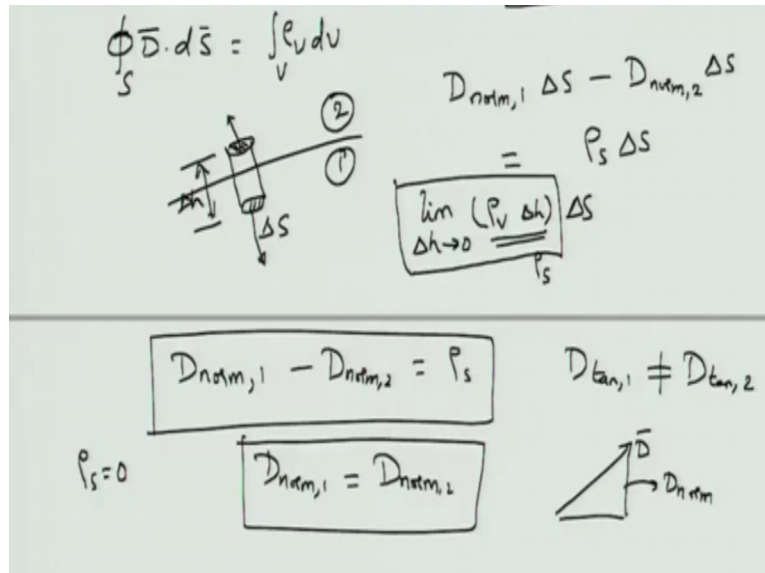 ∮_S D̅ · dS̅ = ∫_V ρ_V dv
D_norm,1 ΔS − D_norm,2 ΔS
= ρ_S ΔS
lim Δh→0 (ρ_V Δh) ΔS
ρ_S
②
①
Δh
ΔS
D_norm,1 − D_norm,2 = ρ_S
D_tan,1 ≠ D_tan,2
ρ_S = 0
D_norm,1 = D_norm,2
D̅
D_norm